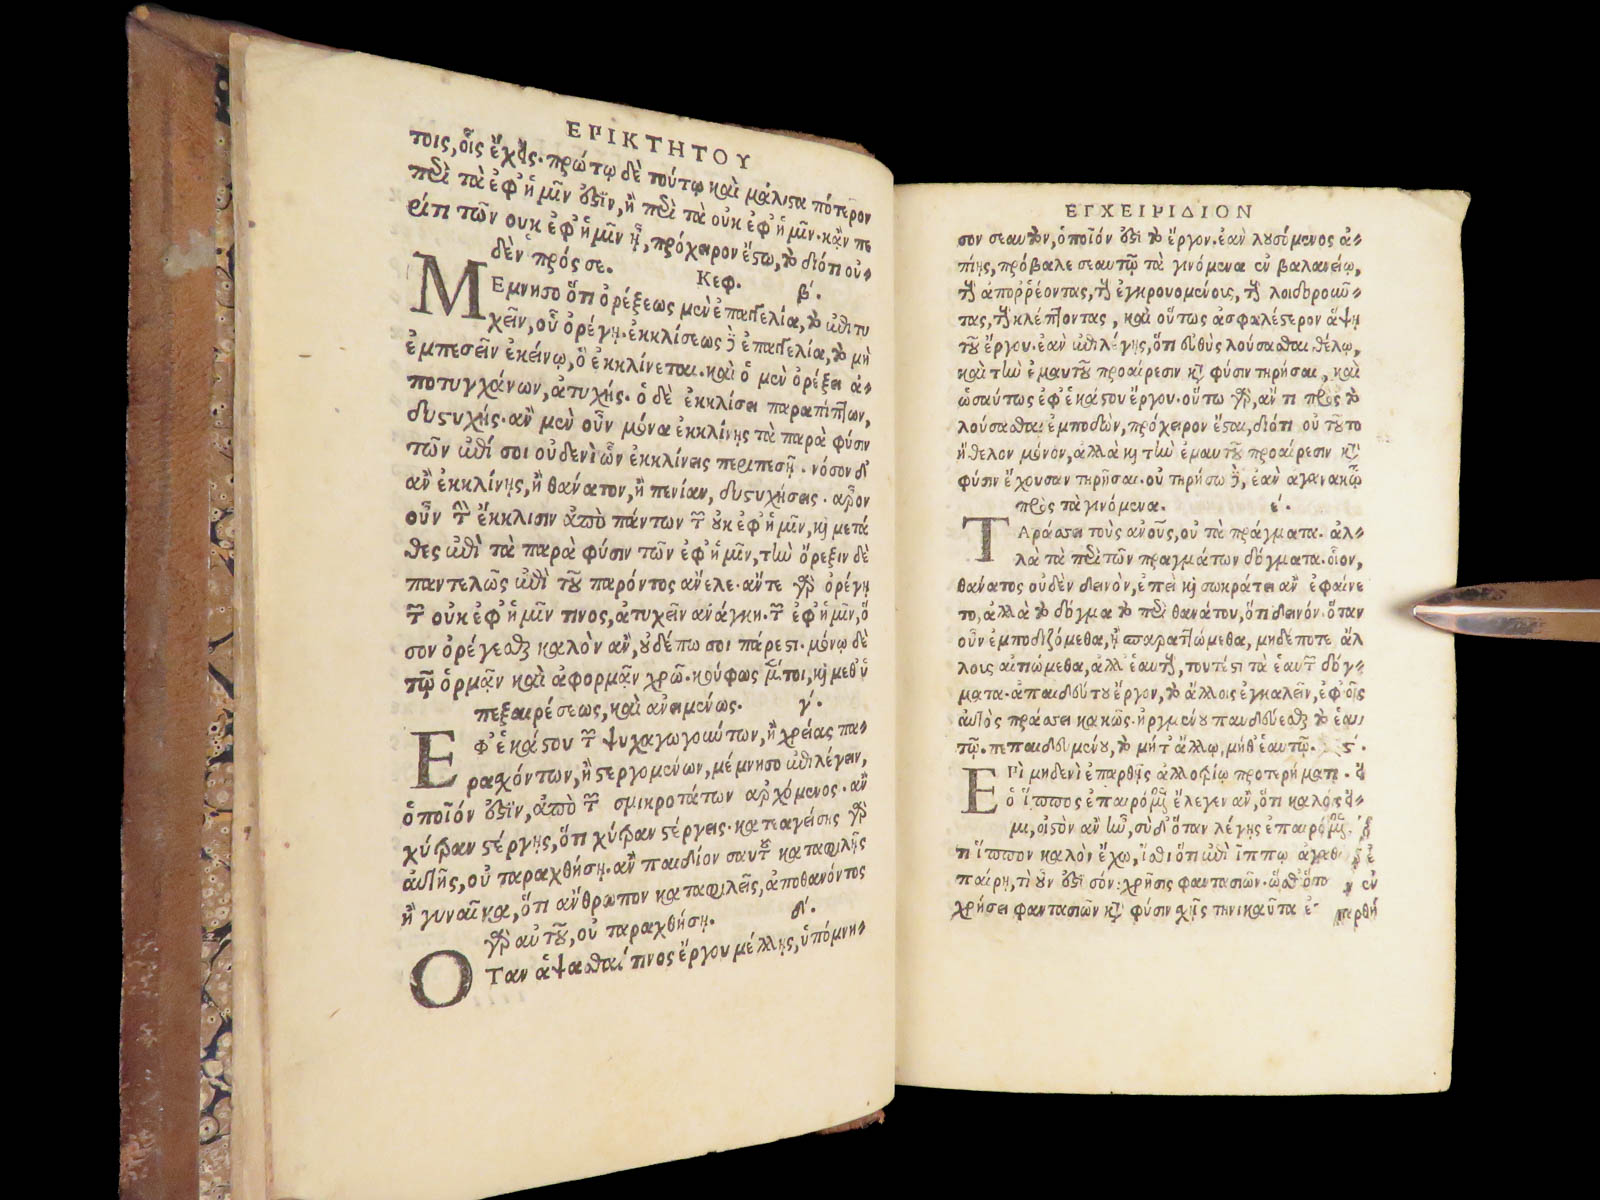 ΕΡΙΚΤΗΤΟΥ
τοις, οἷς ἔχεις. πρώτῳ δὲ τούτῳ καὶ μάλιστα πότερον
περὶ τὰ ἐφ' ἡμῖν ἐστὶν, ἢ περὶ τὰ οὐκ ἐφ' ἡμῖν. κἂν πε
ρί τι τῶν ουκ ἐφ' ἡμῖν ᾖ, πρόχειρον ἔστω, τὸ διότι οὐ-
δὲν πρός σε. Κεφ. β'.
ΜΕμνησο ὅτι ὀρέξεως μὲν ἐπαγγελία, τὸ ἐπιτυ
χεῖν, οὗ ὀρέγῃ. ἐκκλίσεως δὲ ἐπαγγελία, τὸ μὴ
ἐμπεσεῖν ἐκείνῳ, ὃ ἐκκλίνεται. καὶ ὁ μὲν ὀρέξει ἀ-
ποτυγχάνων, ἀτυχής. ὁ δὲ ἐκκλίσει παραπίπτων,
δυστυχής. ἂν μὲν οὖν μόνα ἐκκλίνῃς τὰ παρὰ φύσιν
τῶν ἐπί σοι οὐδενὶ ὧν ἐκκλίνεις περιπεσῇ. νόσον δ'
ἂν ἐκκλίνῃς, ἢ θανατον, ἢ πενίαν, δυστυχήσεις. ἆρον
οὖν τὴν ἔκκλισιν ἀπὸ πάντων τῶν οὐκ ἐφ' ἡμῖν, καὶ μετά
θες ἐπὶ τὰ παρὰ φύσιν τῶν ἐφ' ἡμῖν, τὴν ὄρεξιν δὲ
παντελῶς ἐπὶ τοῦ παρόντος ἄνελε. ἄν τε γὰρ ὀρέγῃ
τῶν οὐκ ἐφ' ἡμῖν τινος, ἀτυχεῖν ἀνάγκη. τῶν ἐφ' ἡμῖν, ὅ
σον ὀρέγεσθαι καλὸν ἂν, οὐδέπω σοι πάρεστι. μόνῳ δὲ
τῷ ὁρμᾷν καὶ ἀφορμᾷν χρῶ. κούφως μέντοι, καὶ μεθ' ὑ
πεξαιρέσεως, καὶ ἀνειμένως. γ'.
ΕΦ' ἑκάστου τῶν ψυχαγωγούντων, ἢ χρείας πα-
ραχόντων, ἢ στεργομένων, μέμνησο ἐπιλέγειν,
ὁποῖόν ἐστιν, ἀπὸ τῶν σμικροτάτων ἀρχόμενος. ἂν
χύτραν στέργῃς, ὅτι χύτραν στέργεις. κατεαγείσης γὰρ
αὐτῆς, οὐ ταραχθήσῃ. ἂν παιδίον σαυτοῦ καταφιλῇς
ἢ γυναῖκα, ὅτι ἄνθρωπον καταφιλεῖς, ἀποθανόντος
γὰρ αὐτοῦ, οὐ ταραχθήσῃ. δ'.
ΟΤαν ἅψασθαί τινος ἔργου μέλλῃς, ὑπόμνη-
ΕΓΧΕΙΡΙΔΙΟΝ
σον σεαυτὸν, ὁποῖόν ἐστι τὸ ἔργον. ἐὰν λουσόμενος ἀ-
πίῃς, πρόβαλε σεαυτῷ τὰ γινόμενα ἐν βαλανείῳ,
τοὺς ἀποῤῥέοντας, τοὺς ἐγκρουομένοις, τοὺς λοιδοροῦν-
τας, τοὺς κλέπτοντας, καὶ οὕτως ἀσφαλέστερον ἅψῃ
τοῦ ἔργου. ἐὰν ἐπιλέγῃς, ὅτι εὐθὺς λούσασθαι θέλω,
καὶ τὴν ἐμαυτοῦ προαίρεσιν κατὰ φύσιν τηρῆσαι, καὶ
ὡσαύτως ἐφ' ἑκάστου ἔργου. οὕτω γὰρ, ἄν τι πρὸς τὸ
λούσασθαι ἐμποδὼν, πρόχειρον ἔσται, διότι οὐ τοῦτο
ἤθελον μόνον, ἀλλὰ καὶ τὴν ἐμαυτοῦ προαίρεσιν κατὰ
φύσιν ἔχουσαν τηρῆσαι. οὐ τηρήσω δὲ, ἐὰν ἀγανακτῶ
πρὸς τὰ γινόμενα. ε'.
ΤΑράσσει τοὺς ἀνους, οὐ τὰ πράγματα. ἀλ-
λὰ τὰ περὶ τῶν πραγμάτων δόγματα. οἷον,
θάνατος οὐδὲν δεινὸν, ἐπεὶ καὶ σωκράτει ἂν ἐφαίνε
το, ἀλλὰ τὸ δόγμα τὸ περὶ θανάτου, ὅτι δεινόν. ὅταν
οὖν ἐμποδιζόμεθα, ἢ ταραττώμεθα, μηδέποτε ἄλ
λοις αἰτιώμεθα, ἀλλ' ἑαυτοὺς, τουτέστι τὰ ἑαυτῶν δόγ-
ματα. ἀπαιδεύτου ἔργον, τὸ ἄλλοις ἐγκαλεῖν, ἐφ' οἷς
αὐτὸς πράσσει κακῶς. ἠργμένου παιδεύεσθαι τὸ ἑαυ
τῷ. πεπαιδευμένου, τὸ μήτ' ἄλλῳ, μήθ' ἑαυτῷ. ϛ'.
ΕΠὶ μηδενὶ ἐπαρθῇς ἀλλοτρίῳ προτερήματι. εἰ
ὁ ἵππος ἐπαιρόμενος ἔλεγεν ἂν, ὅτι καλός εἰ-
μι, οἰστὸν ἂν ἦν, σὺ δ' ὅταν λέγῃς ἐπαιρόμενος. ὅ
τι ἵππον καλὸν ἔχω, ἴσθι ὅτι ἐπὶ ἵππῳ ἀγαθ ἐ
παίρῃ, τί οὖν ἐστὶ σόν; χρῆσις φαντασιῶν. ὥσθ' ὅτα ἐν
χρήσει φαντασιῶν κατὰ φύσιν σχῇς τηνικαῦτα ἐπάρθη